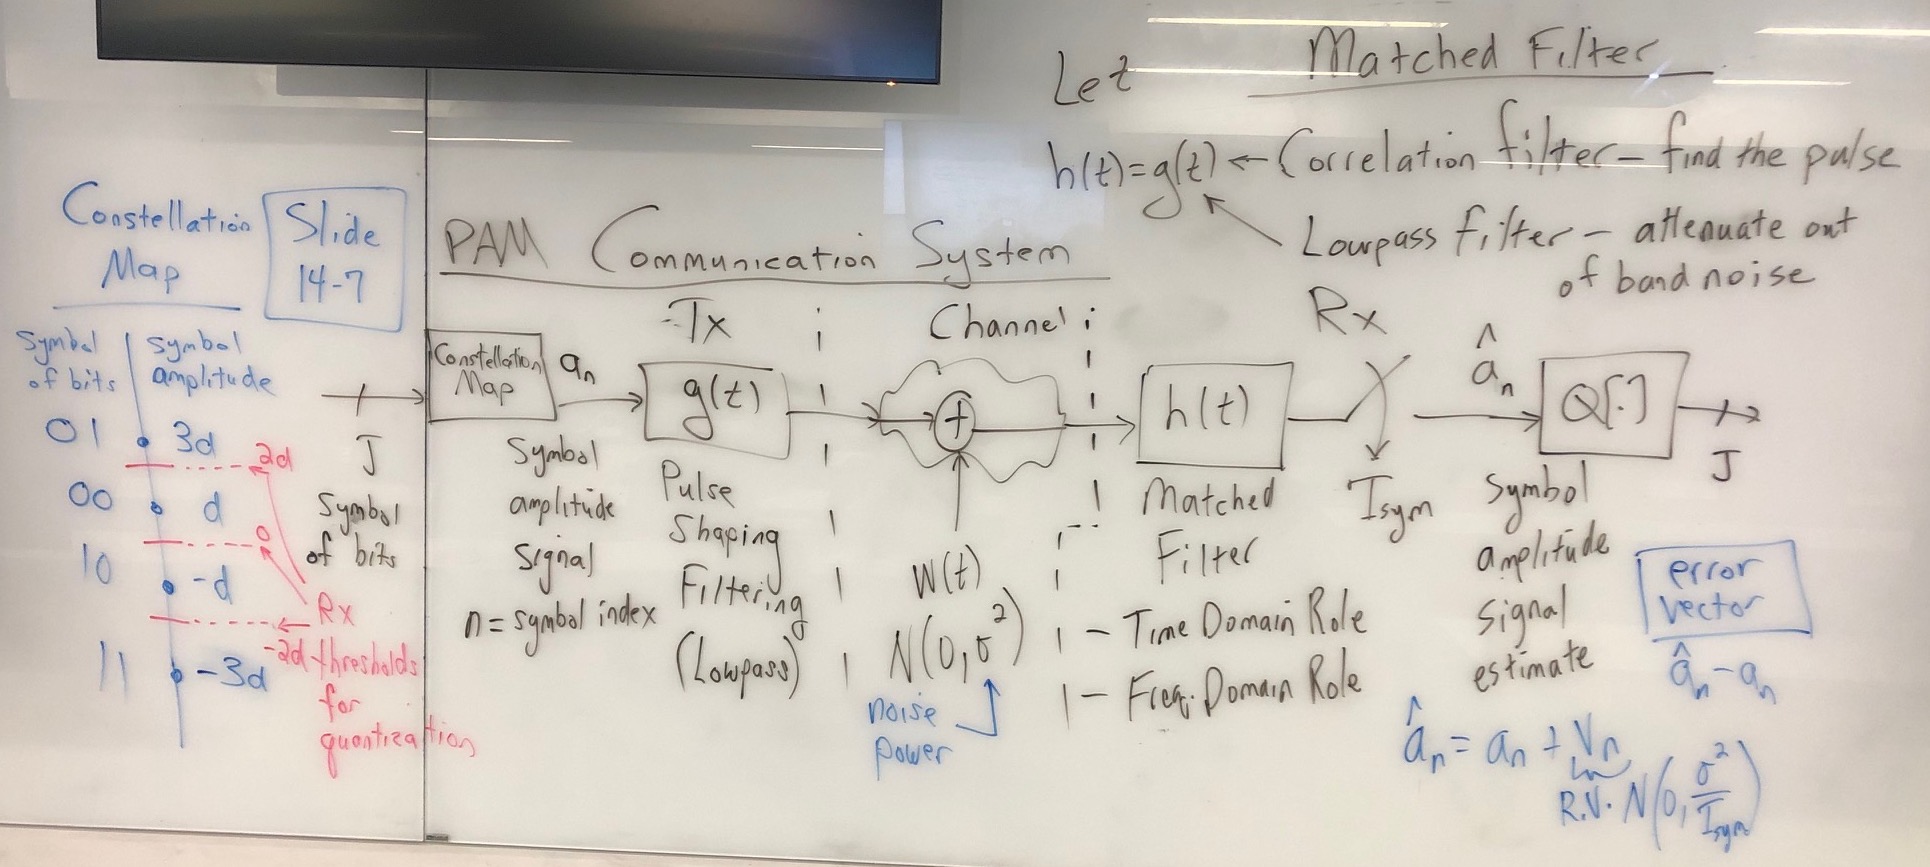 Matched Filter
Let
h(t)=g(t) ← Correlation filter – find the pulse
Lowpass filter – attenuate out
of band noise
Constellation
Map
Slide
14-7
Symbol
of bits
symbol
amplitude
01 3d
2d
00 d
0
10 -d
-2d
11 -3d
Rx
thresholds
for
quantization
PAM Communication System
Tx
Channel
Rx
J
Symbol
of bits
Constellation
Map
aₙ
Symbol
amplitude
signal
n = symbol index
g(t)
Pulse
Shaping
Filtering
(Lowpass)
+
W(t)
N(0,σ²)
noise
power
h(t)
Matched
Filter
– Time Domain Role
– Freq. Domain Role
Tsym
âₙ
Symbol
amplitude
signal
estimate
Q[.]
J
error
vector
âₙ - aₙ
âₙ = aₙ + Vₙ
R.V. N(0, σ²/Tsym)